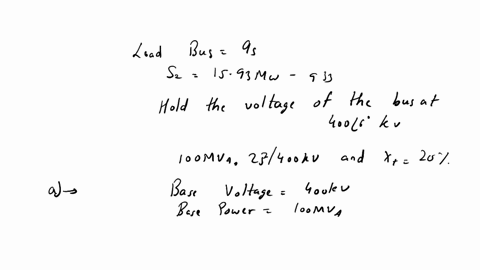 Load Bus = 9s
S2 = 15.93 Mw - 933
Hold the voltage of the bus at
400∠5° kv
100MVA, 25/400kv and Xt = 20%
a)→ Base Voltage = 400kv
Base Power = 100MVA